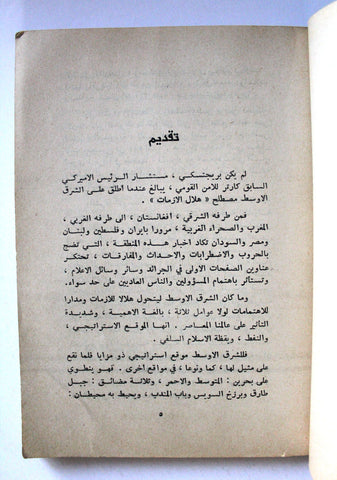 تقديم
لم يكن بريجنسكي ، مستشار الرئيس الاميركي
السابق كارتر للامن القومي ، يبالغ عندما اطلق على الشرق
الاوسط مصطلح « هلال الازمات » .
فمن طرفه الشرقي ، افغانستان ، الى طرفه الغربي ،
المغرب والصحراء الغربية ، مرورا بايران وفلسطين ولبنان
ومصر والسودان تكاد اخبار هذه المنطقة ، التي تضج
بالحروب والاضطرابات والاحداث والمفارقات ، تحتكر
عناوين الصفحات الاولى في الجرائد وسائر وسائل الاعلام ،
وتستأثر باهتمام المسؤولين والناس العاديين على حد سواء .
وما كان الشرق الاوسط ليتحول هلالا للازمات ومدارا
للاهتمامات لولا عوامل ثلاثة ، بالغة الاهمية ، وشديدة
التأثير على عالمنا المعاصر . انها الموقع الاستراتيجي ،
والنفط ، ويقظة الاسلام السلفي .
فللشرق الاوسط موقع استراتيجي ذو مزايا قلما نقع
على مثيل لها ، كما ونوعا ، في مواقع اخرى . فهو ينطوي
على بحرين : المتوسط والاحمر ، وثلاثة مضائق : جبل
طارق وبرزخ السويس وباب المندب ، ويحيط به محيطان :
٥